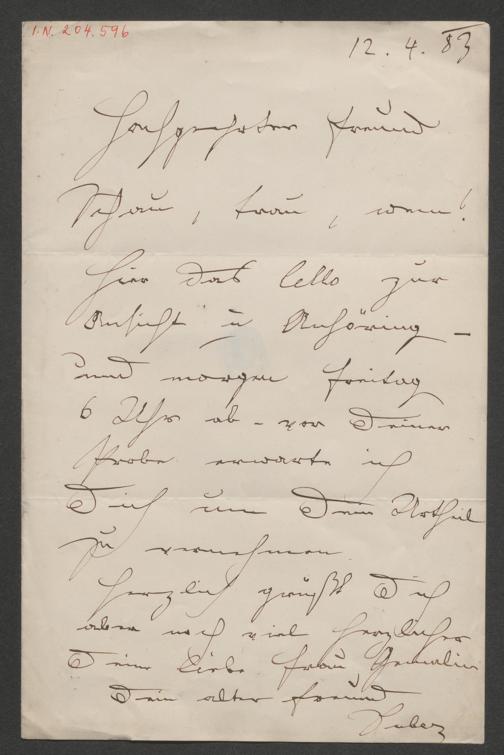 I.N. 204.596
12. 4. 83
Hochgeehrter Freund
Schau, trau, wem!
Hier das Cello zur
Ansicht u Anhöring –
und morgen Freitag
6 Uhr ab – vor Deiner
Probe erwarte ich
Dich um Dein Urtheil
zu vernehmen
Herzlich grüßt Dich
aber noch viel herzlicher
Deine liebe Frau Gemalin
Dein alter Freund